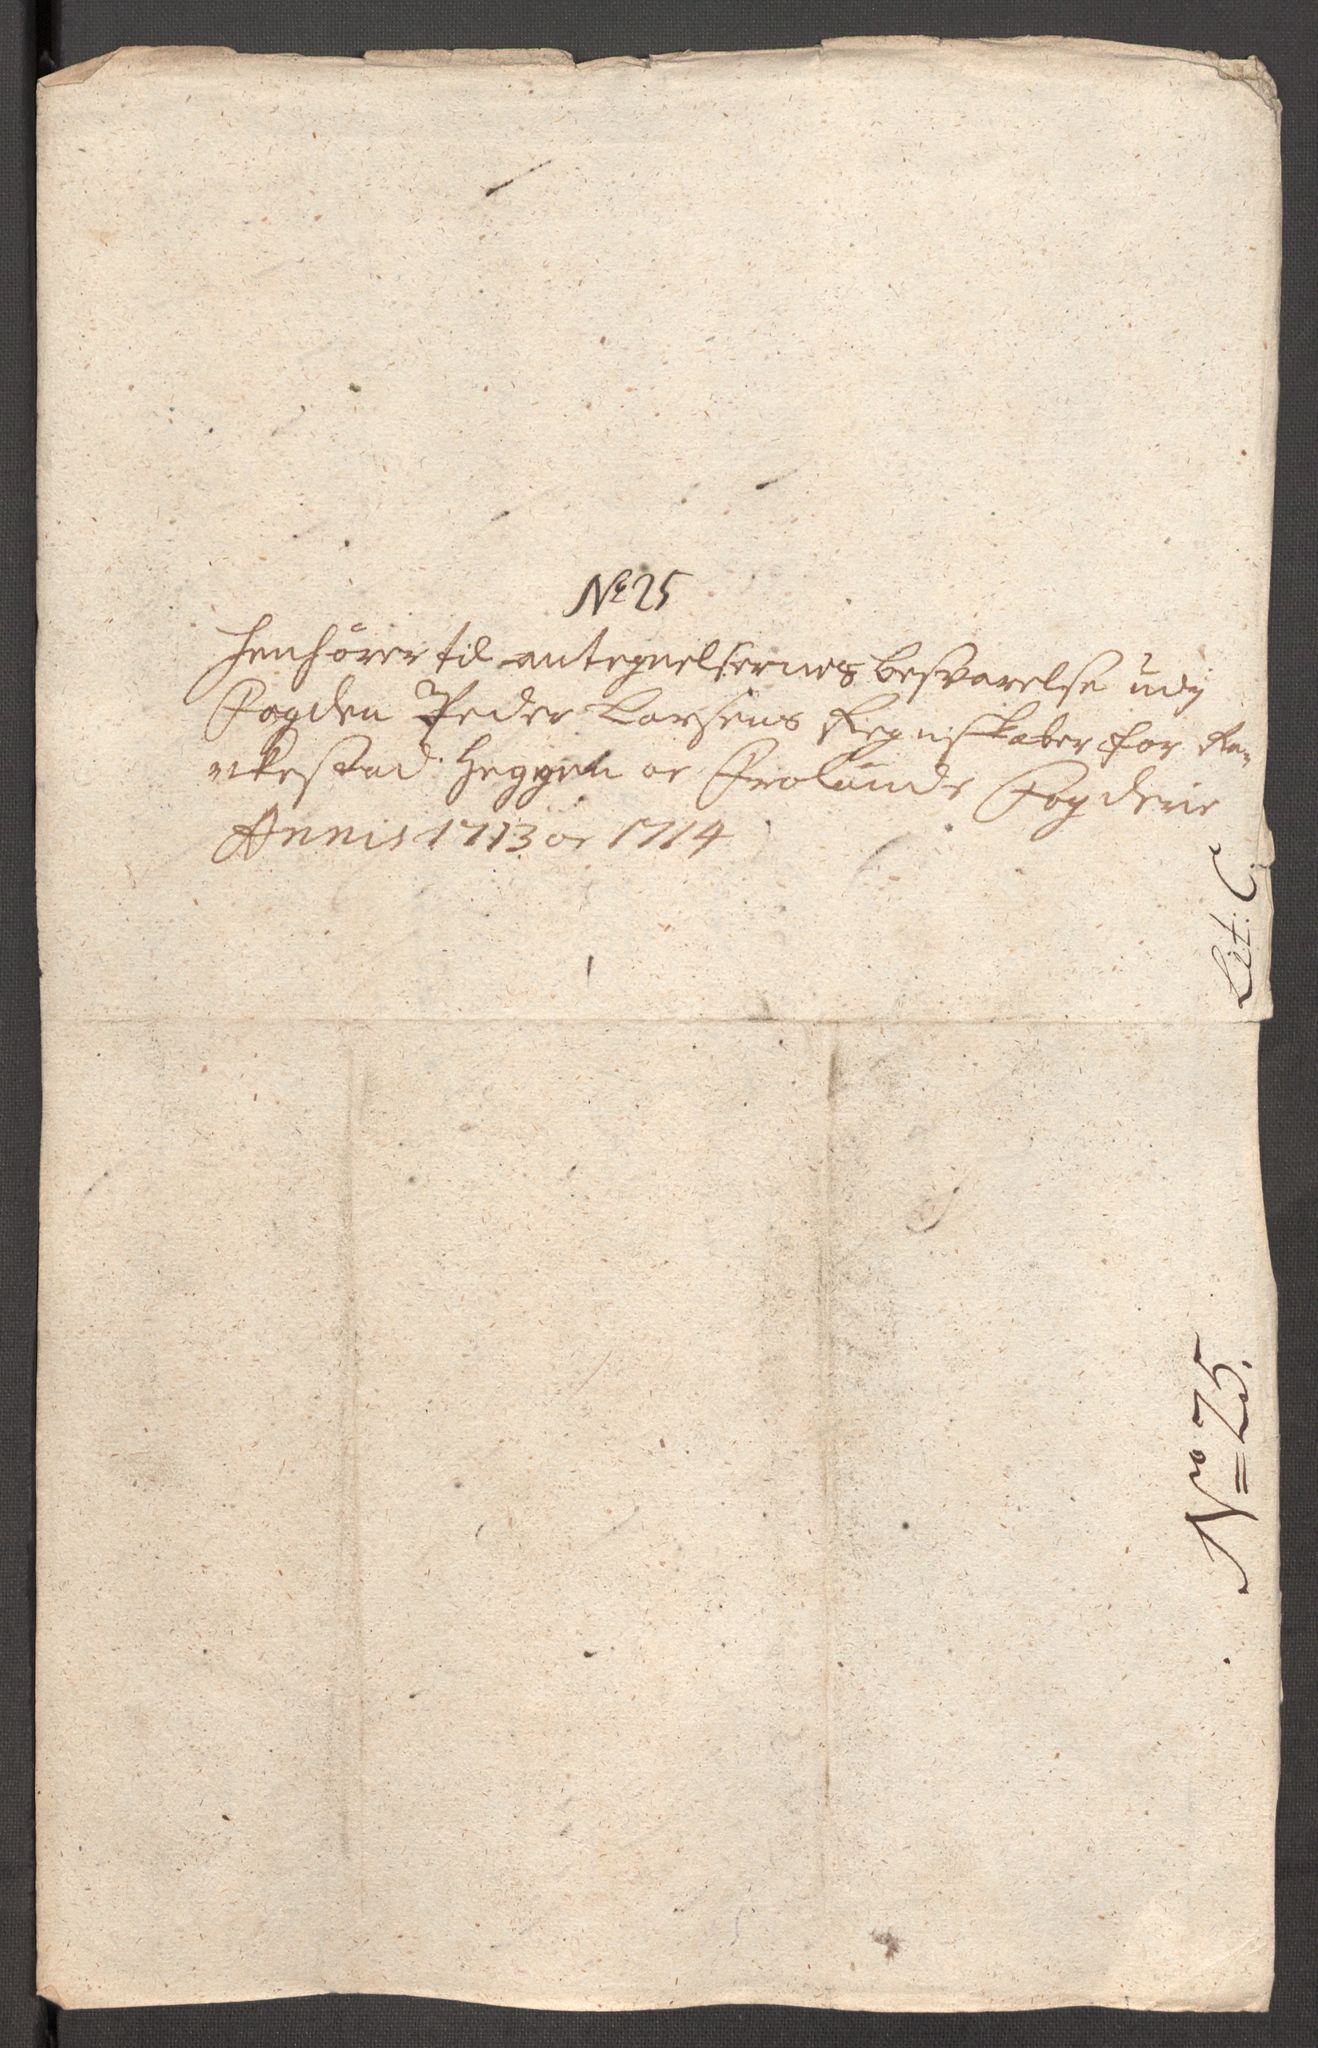 No 25
Henhörer til antegnelsernes besvarelse udj
Fogden Peder Larsens Regnskaber for Ra-
akestad Heggen oc Frölands Fogderie
Annis 1713 oc 1714
Lit. C.
Nro 25.